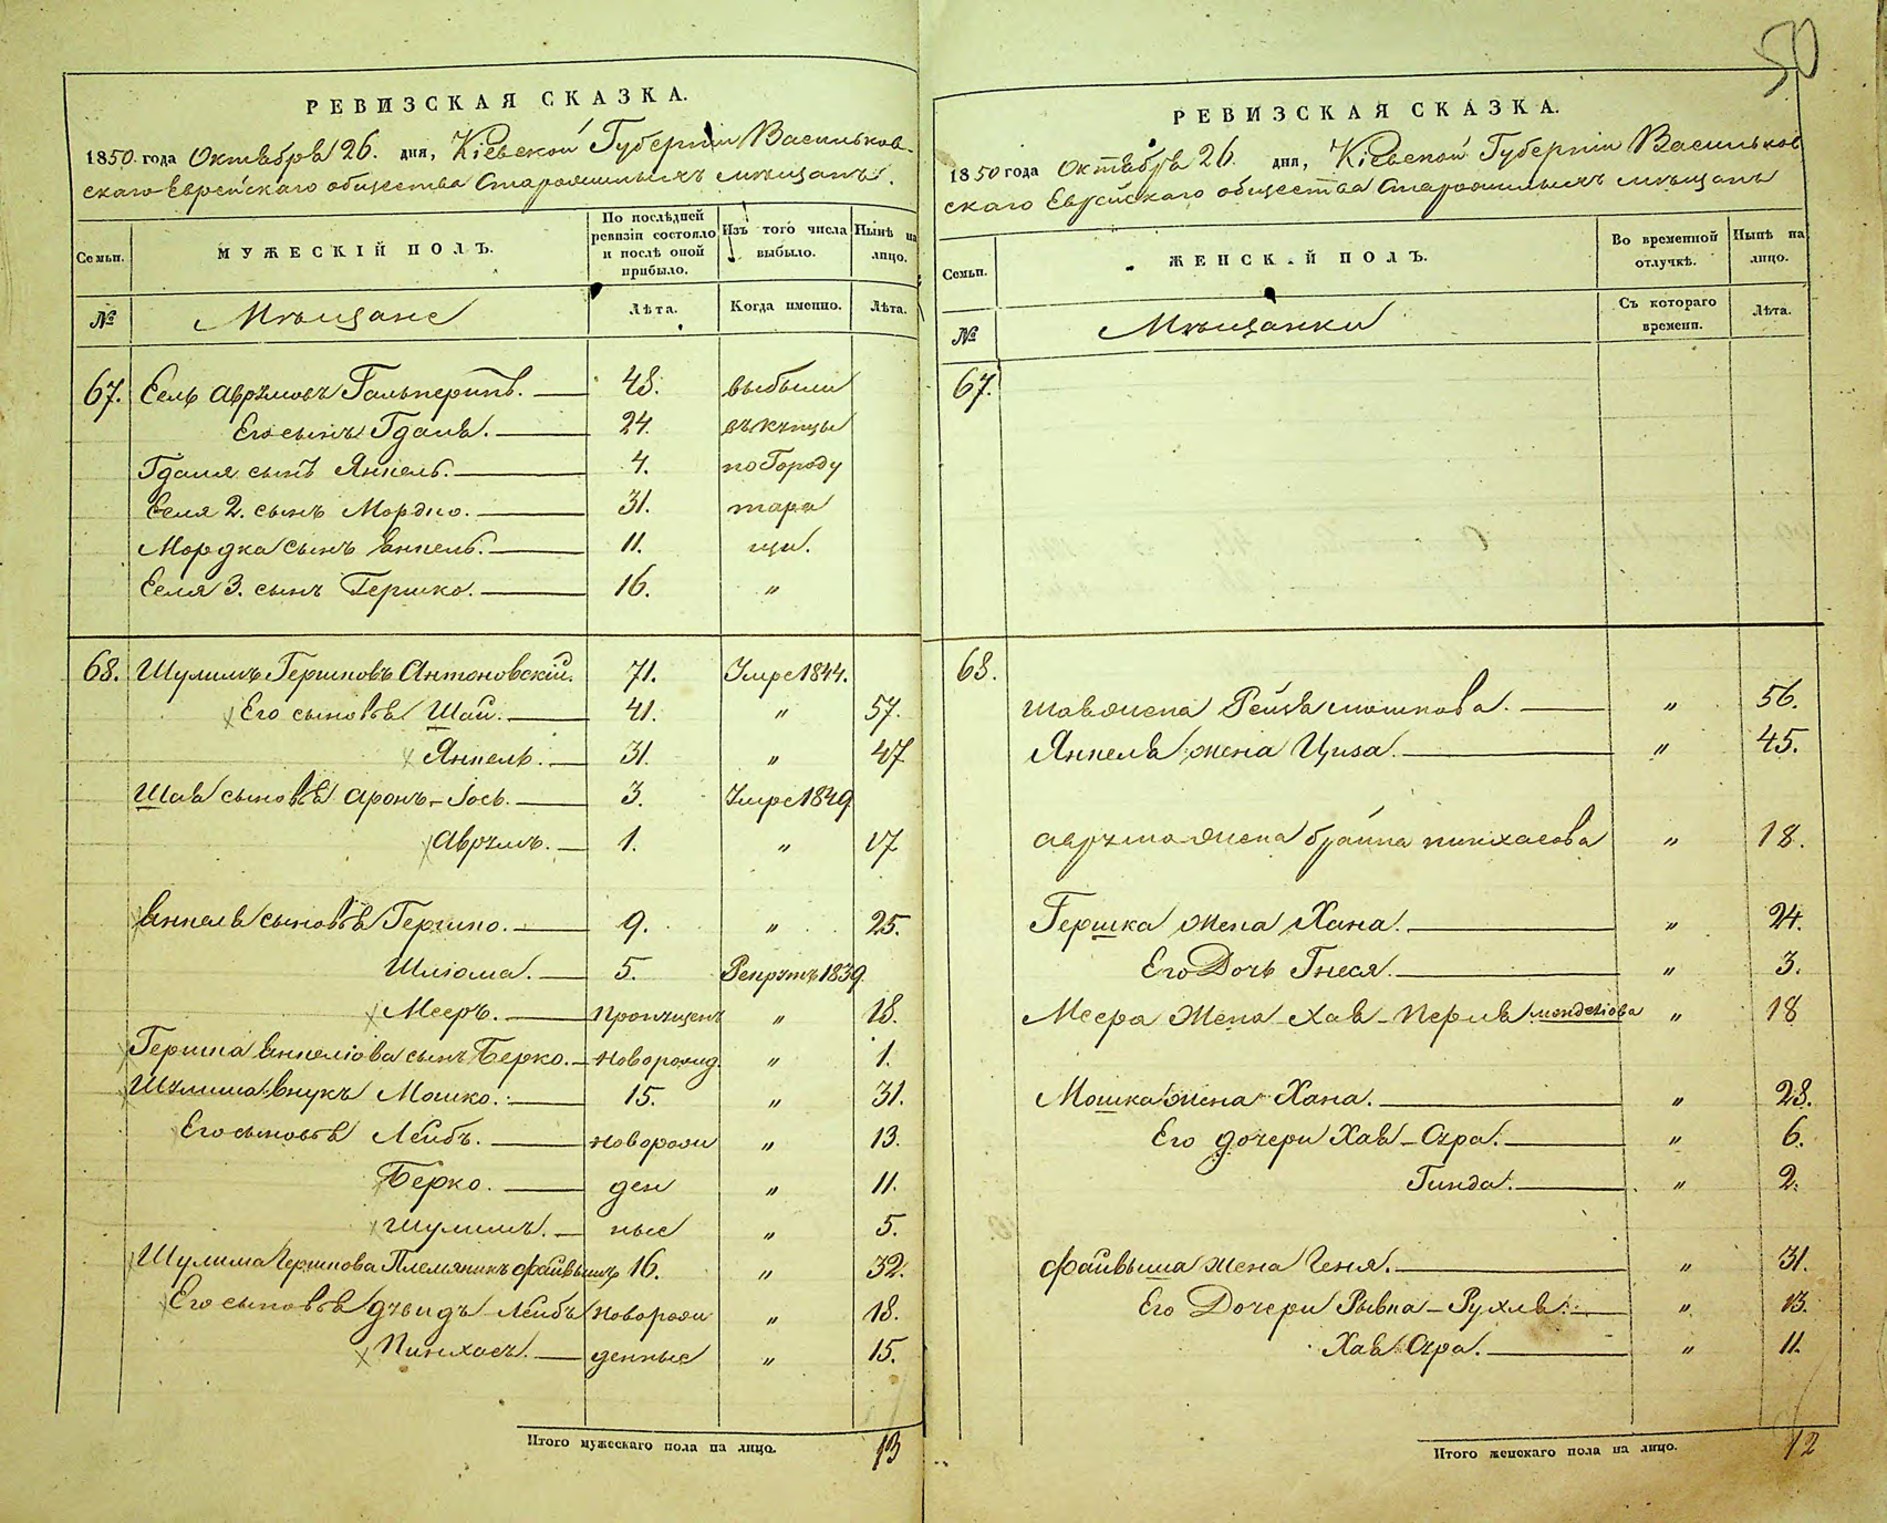 50
РЕВИЗСКАЯ СКАЗКА.
1850. года Октября 26. дня, Кіевской Губерніи Васильков-
скаго Еврейскаго общества Старожилыхъ мѣщанъ.
Семьи.
МУЖЕСКІЙ ПОЛЪ.
По послѣдней ревизіи состояло и послѣ оной прибыло.
Изъ того числа выбыло.
Нынѣ на лицо.
№
Мѣщане
Лѣта.
Когда именно.
Лѣта.
67. Ель Аврумовъ Гальперинъ. 48. выбыли
Его сынъ Гдаля. 24. въ купцы
Гдаля сынъ Янкель. 4. по Городу
Еля 2. сынъ Мордко. 31. тара
Мордка сынъ Янкель. 11. щи.
Еля 3. сынъ Гершко. 16. "
68. Шулимъ Гершковъ Антоновскій. 71. Умре 1844.
Его сыновья Шая. 41. " 57.
Янкель. 31. " 47
Шаи сыновья Аронъ-Іось. 3. Умре 1849
Аврумъ. 1. " 17
Янкеля сыновья Гершко. 9. " 25.
Шлюма. 5. Рекрутъ 1839.
Мееръ. Пропущенъ " 18.
Гершка Янкеліова сынъ Берко. новорожд. " 1.
Шулима внукъ Мошко. 15. " 31.
Его сыновья Лейбъ. новорож " 13.
Берко. ден " 11.
Шулимъ. ные " 5.
Шулима Гершкова Племянникъ Файвышъ 16. " 32.
Его сыновья Дувидъ Лейбъ новорож " 18.
Пинхасъ. денные " 15.
Итого мужескаго пола на лицо. 13
РЕВИЗСКАЯ СКАЗКА.
1850 года Октября 26. дня, Кіевской Губерніи Васильков
скаго Еврейскаго общества Старожилыхъ мѣщанъ
Семьи.
ЖЕНСКІЙ ПОЛЪ.
Во временной отлучкѣ.
Нынѣ на лицо.
№
Мѣщанки
Съ котораго времени.
Лѣта.
67.
68.
Шаи жена Рейзя Мошкова. " 56.
Янкеля жена Цизя. " 45.
Аврума жена Брайна Пинхасова " 18.
Гершка жена Хана. " 24.
Его Дочь Гнеся. " 3.
Меера жена Хая-Перля Менделіова " 18
Мошка жена Хана. " 28.
Его дочери Хая-Сура. " 6.
Гинда. " 2.
Файвыша жена Геня. " 31.
Его Дочери Рывка-Рухля. " 13.
Хая Сура. " 11.
Итого женскаго пола на лицо. 12